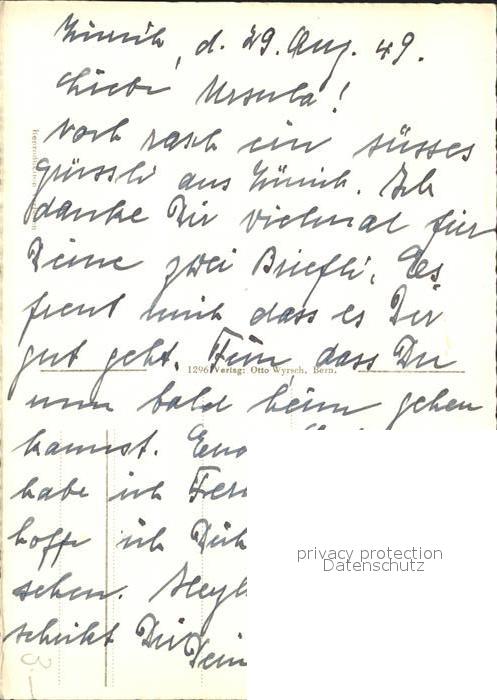 Zürich, d. 29. Aug. 49.
Liebe Ursula!
Noch rasch ein süsses
Grüssli aus Zürich. Ich
danke Dir vielmal für
Deine zwei Briefli. Es
freut mich dass es Dir
gut geht. Fein dass Du
1296 Verlag: Otto Wyrsch, Bern.
nun bald heim gehen
kannst.
habe ich
hoffe ich Dich
sehen.
schickt Dir
Dein
privacy protection
Datenschutz